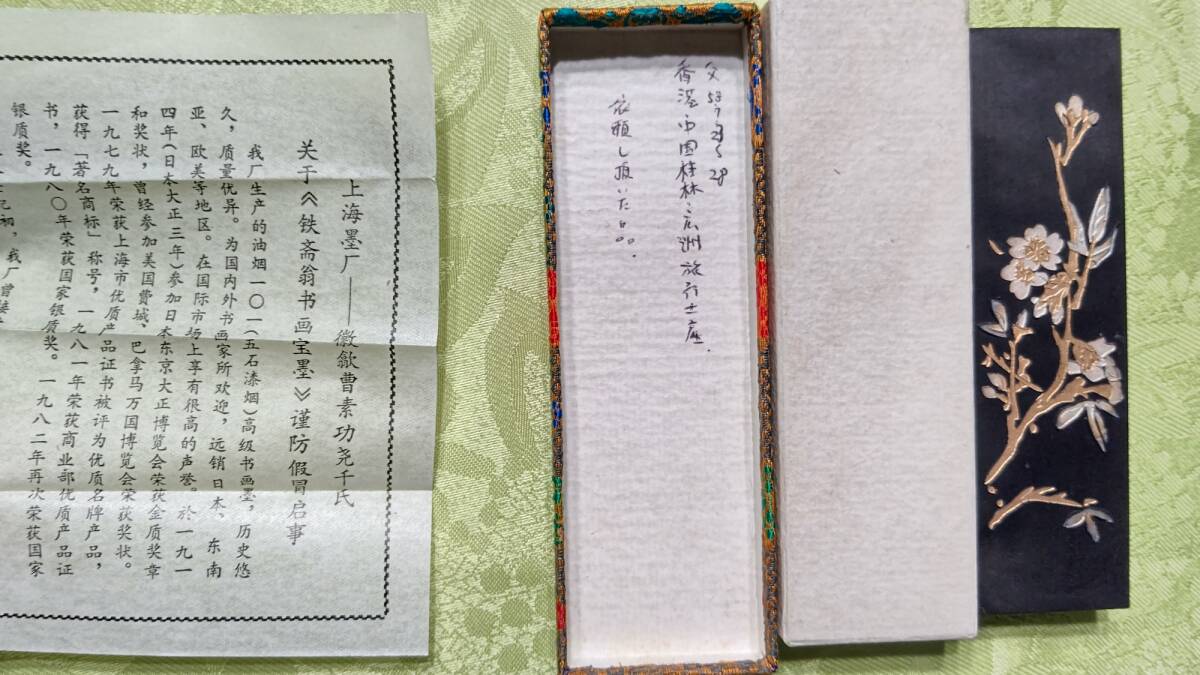 上海墨厂——徽歙曹素功尧千氏
关于《铁斋翁书画宝墨》谨防假冒启事
我厂生产的油烟一〇一(五石漆烟)高级书画墨，历史悠
久，质量优异。为国内外书画家所欢迎，远销日本、东南
亚、欧美等地区。在国际市场上享有很高的声誉。於一九一
四年(日本大正三年)参加日本东京大正博览会荣获金质奖章
和奖状，曾经参加美国费城、巴拿马万国博览会荣获奖状。
一九七九年荣获上海市优质产品证书被评为优质名牌产品，
获得「著名商标」称号，一九八一年荣获商业部优质产品证
书，一九八〇年荣获国家银质奖。一九八二年再次荣获国家
银质奖。
初，我厂曾
父 53 7 28
香港中国桂林、広洲旅行土産.
依頼し頂いた品。